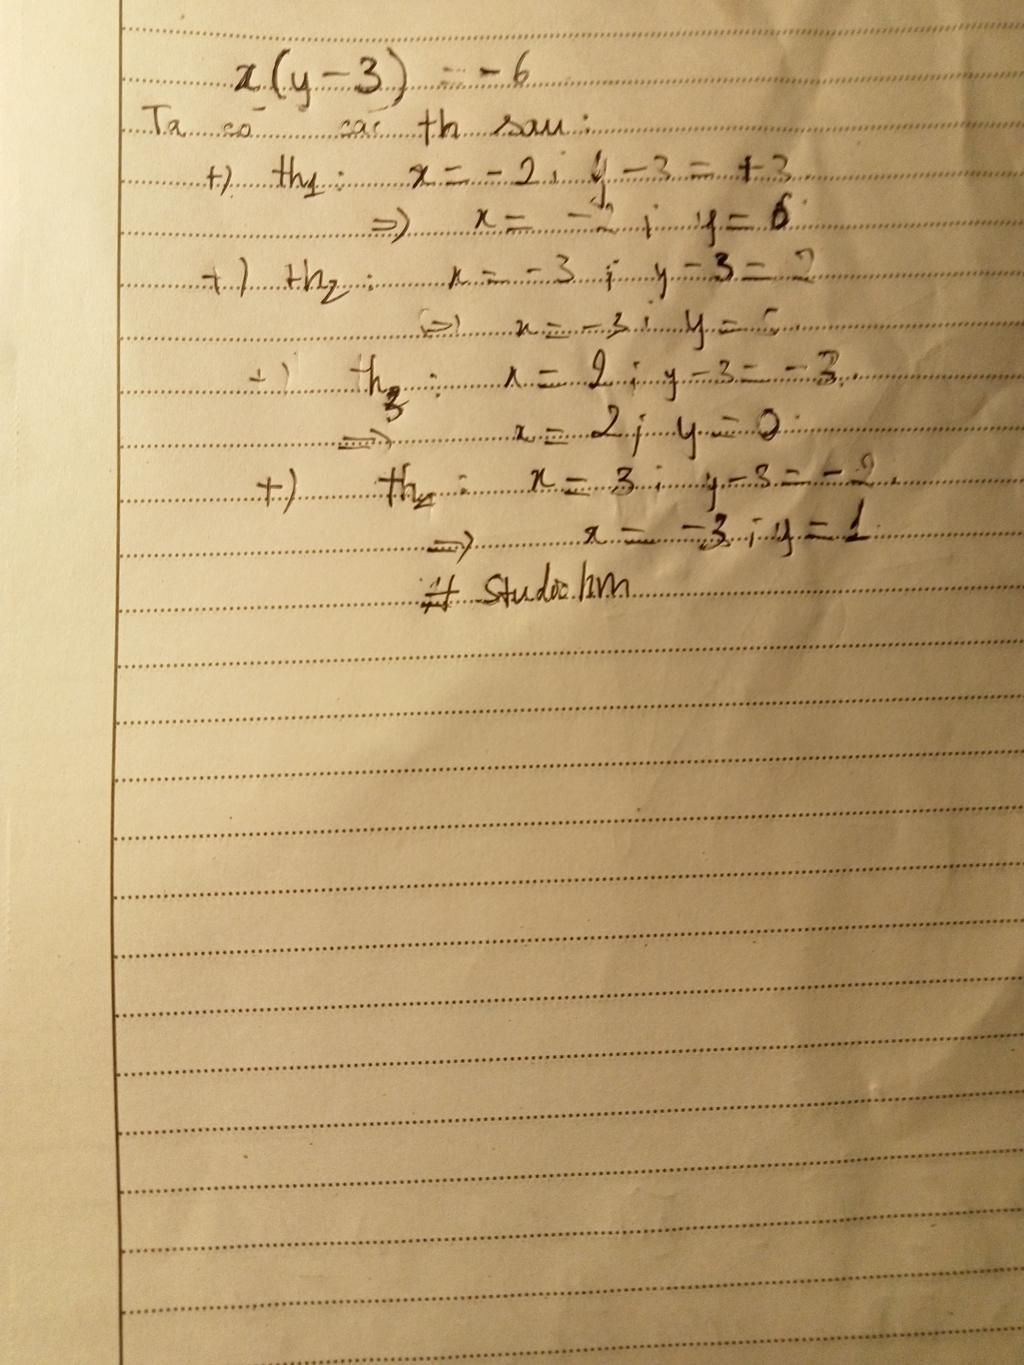 x(y-3) = -6
Ta có các th sau:
+) th1: x = -2; y-3 = +3
=) x = -2; y = 6
+) th2: x = -3; y-3 = 2
=) x = -3; y = 5
+) th3: x = 2; y-3 = -3.
=) x = 2; y = 0
+) th4: x = 3; y-3 = -2.
=) x = -3; y = 1
#